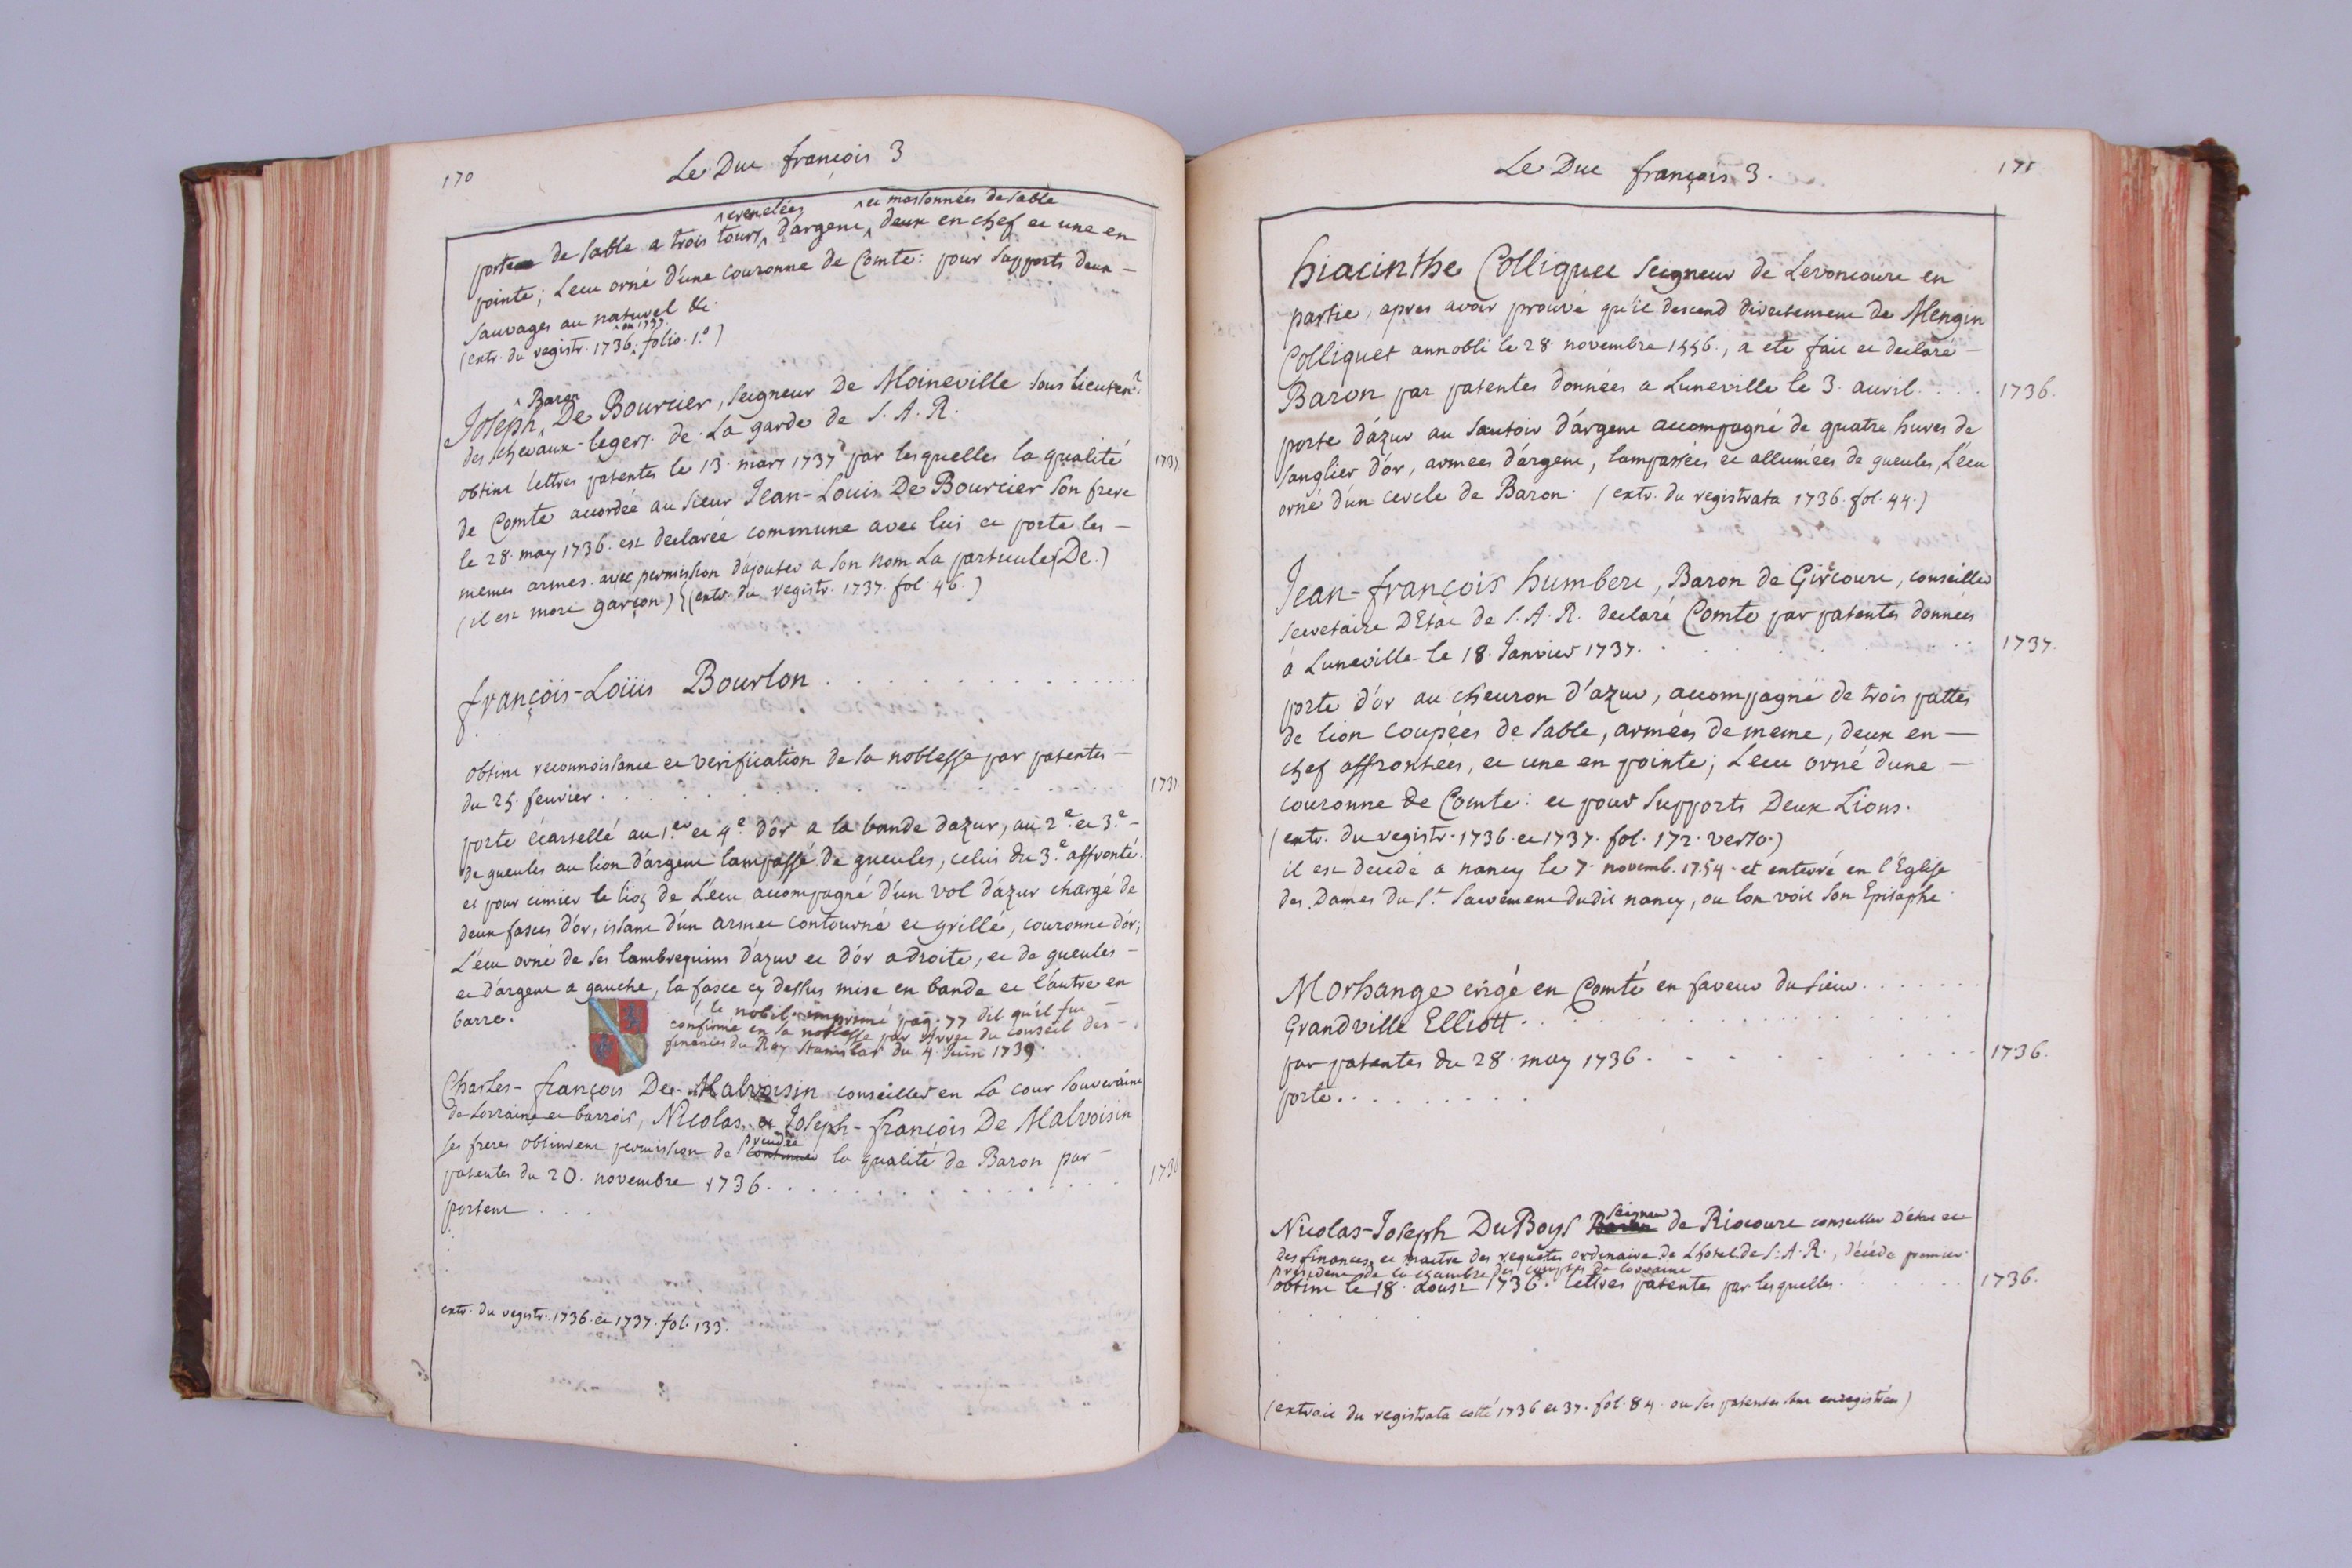 170
Le Duc françois 3
crenelées et massonnées de sable
porte de sable a trois tours d'argent, deux en chef et une en
pointe; L'ecu orné d'une couronne de Comte: pour supports deux –
sauvages au naturel &c.
en 1737.
(extr. du registr. 1736. folio. 1.º)
Baron
Joseph De Bourcier, seigneur De Moineville sous lieuten.t
des chevaux-legers de La garde de S. A. R.
obtint lettres patentes le 13. mars 1737 par lesquelles la qualité
1737.
de Comte accordée au sieur Jean-Louis De Bourcier son frere
le 28. may 1736. est declarée commune avec lui et porte les –
memes armes. avec permission d'ajouter a son nom La particule (De.)
(il est mort garçon) (extr. du registr. 1737. fol. 46.)
françois-Loüis Bourlon . . . . . . . . . . . .
obtint reconnoissance et verification de sa noblesse par patentes –
du 25. feuvier . . . . . . . . . . . .
1737.
porte écartellé au 1.er et 4.e d'or a la bande d'azur, au 2.e et 3.e –
de gueules au lion d'argent lampassé de gueules, celui du 3.e affronté.
et pour cimier le lion de L'ecu accompagné d'un vol d'azur chargé de
deux fasces d'or, issant d'un armet contourné et grillé, couronné d'or;
L'écu orné de ses lambrequins d'azur et d'or a droite, et de gueules –
et d'argent a gauche, la fasce cy dessus mise en bande et l'autre en
barre.
(le nobil. imprimé pag. 77 dit qu'il fut –
confirmé en sa noblesse par Arret du conseil des –
finances du Roy Stanislas du 4 Juin 1739.
Charles-françois De Malvoisin conseiller en La cour souveraine
de Lorraine et barrois, Nicolas, et Joseph-françois De Malvoisin
prendre
ses freres obtinrent permission de continuer la qualité de Baron par –
patentes du 20. novembre 1736. . . . . . . . . . . .
1736
portent . . .
extr. du registr. 1736. et 1737. fol. 133.
Le Duc françois 3.
171
hiacinthe Colliquet seigneur de Levoncourt en
partie, apres avoir prouvé qu'il descend directement de Mengin
Colliquet annobli le 28 novembre 1556., a eté fait et declaré –
Baron par patentes données a Luneville le 3. auril. . . .
1736.
porte d'azur au sautoir d'argent accompagné de quatre hures de
sanglier d'or, armées d'argent, lampassées et allumées de gueules, L'écu
orné d'un cercle de Baron. (extr. du registrata 1736. fol. 44.)
Jean-françois humbert, Baron de Gircourt, conseiller
secretaire D'Etat de S. A. R. declaré Comte par patentes données
à Luneville le 18. Janvier 1737. . . . . . . . .
1737.
porte d'or au cheuron d'azur, accompagné de trois pattes
de lion coupées de sable, armées de meme, deux en –
chef affrontées, et une en pointe; L'ecu orné d'une –
couronne de Comte: et pour supports Deux Lions.
(extr. du registr. 1736. et 1737. fol. 172. verso.)
il est decedé a nancy le 7. novemb. 1754. et enterré en l'Eglise
des Dames du S.t Sacrement dudit nancy, ou lon voit son Epitaphe.
Morhange erigé en Comté en faveur du sieur . . . . . . .
Grandville Elliott . . . . . . . . . . . .
par patentes du 28. may 1736. . . . . . . . .
1736.
porte. . . . . . . . .
seigneur
Nicolas-Joseph DuBoys Baron de Riocourt conseiller d'etat et
des finances, et maitre des requêtes ordinaire de L'hotel de S. A. R., décédé premier
president de la chambre des comptes de Lorraine
obtint le 18. aoust 1736. lettres patentes par lesquelles . . . . . .
1736.
(extrait du registrata cotté 1736 et 37. fol. 84. ou ses patentes sont enregistrées)